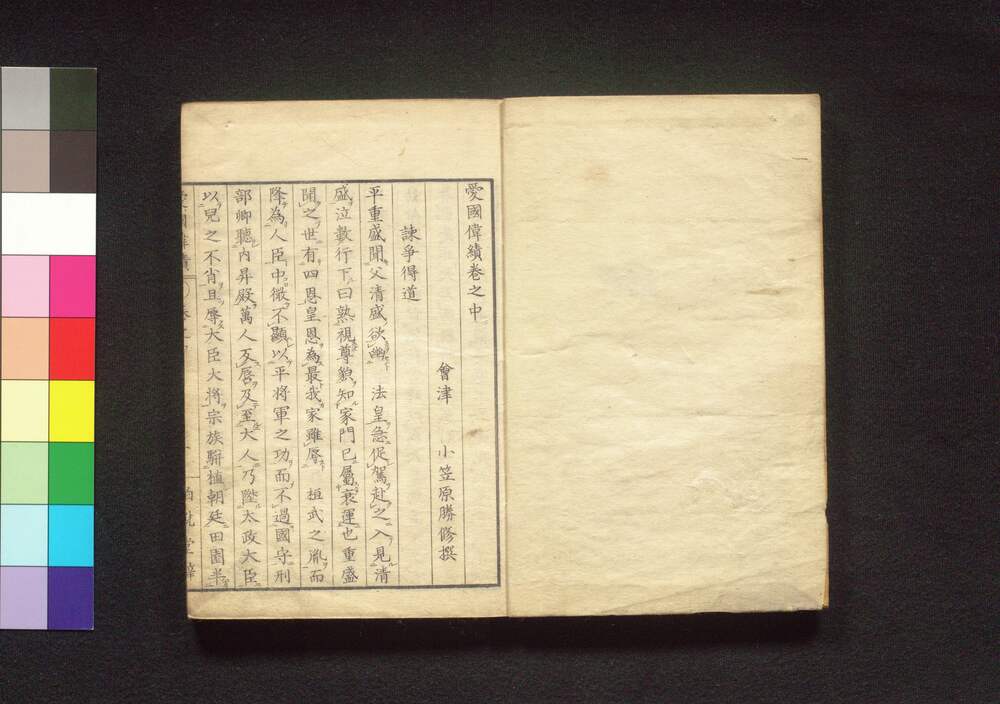 愛國偉績卷之中
會津 小笠原勝修撰
諫爭得道
平重盛聞父清盛欲幽 法皇急促駕赴之入見清
盛泣數行下曰熟視尊貌知家門已屬衰運也重盛
聞之世有四恩皇恩為最我家雖辱 桓武之胤而
降為人臣中微不顯以平将軍之功而不過國守刑
部卿聽内昇殿萬人反唇及至大人乃陞太政大臣
以兒之不肖且辱大臣大将宗族駢植朝廷田園半